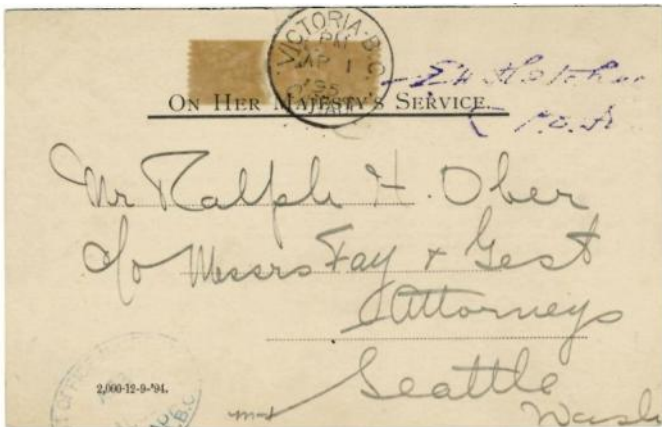 VICTORIA·B.C.
PM
AP 1
95
CANADA
ON HER MAJESTY'S SERVICE.
Mr Ralph H. Ober
c/o Messrs Fay + Gest
Attorneys
Seattle
Wash
2,000-12-9-'94.
B.C.